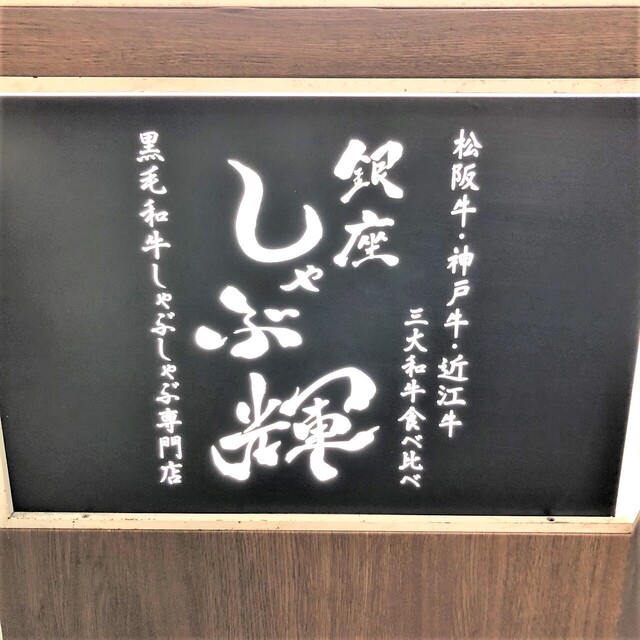 松阪牛・神戸牛・近江牛
三大和牛食べ比べ
銀座
しゃぶ輝
黒毛和牛しゃぶしゃぶ専門店